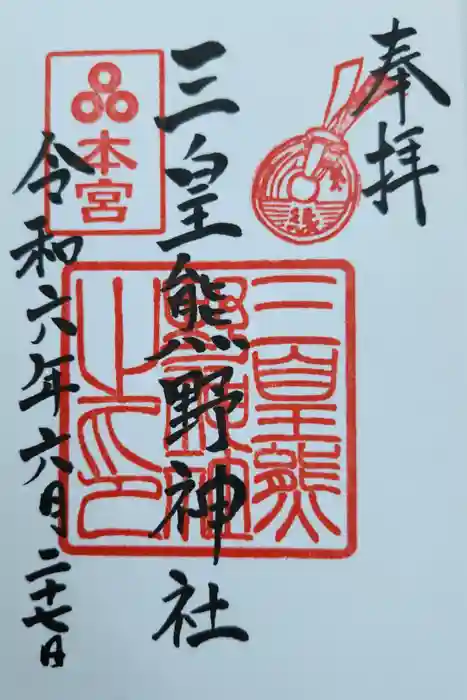 奉拝
三皇熊野神社
本宮
令和六年六月二十七日
三皇熊
野神社
之印